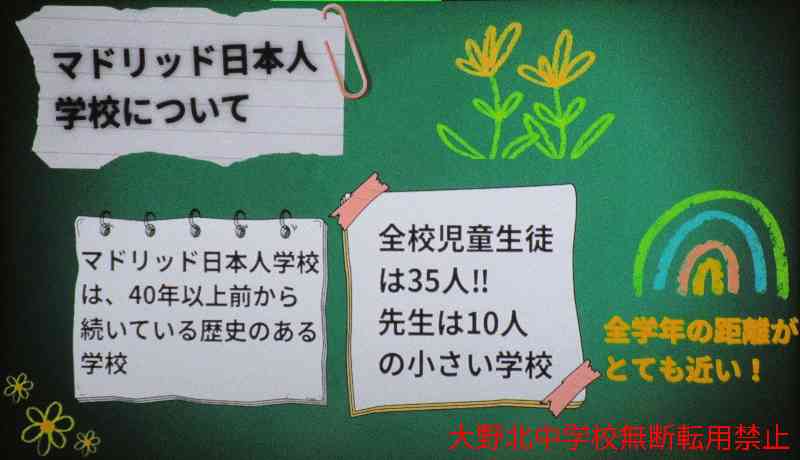 マドリッド日本人
学校について
マドリッド日本人学校
は、40年以上前から
続いている歴史のある
学校
全校児童生徒
は35人!!
先生は10人
の小さい学校
全学年の距離が
とても近い！
大野北中学校無断転用禁止